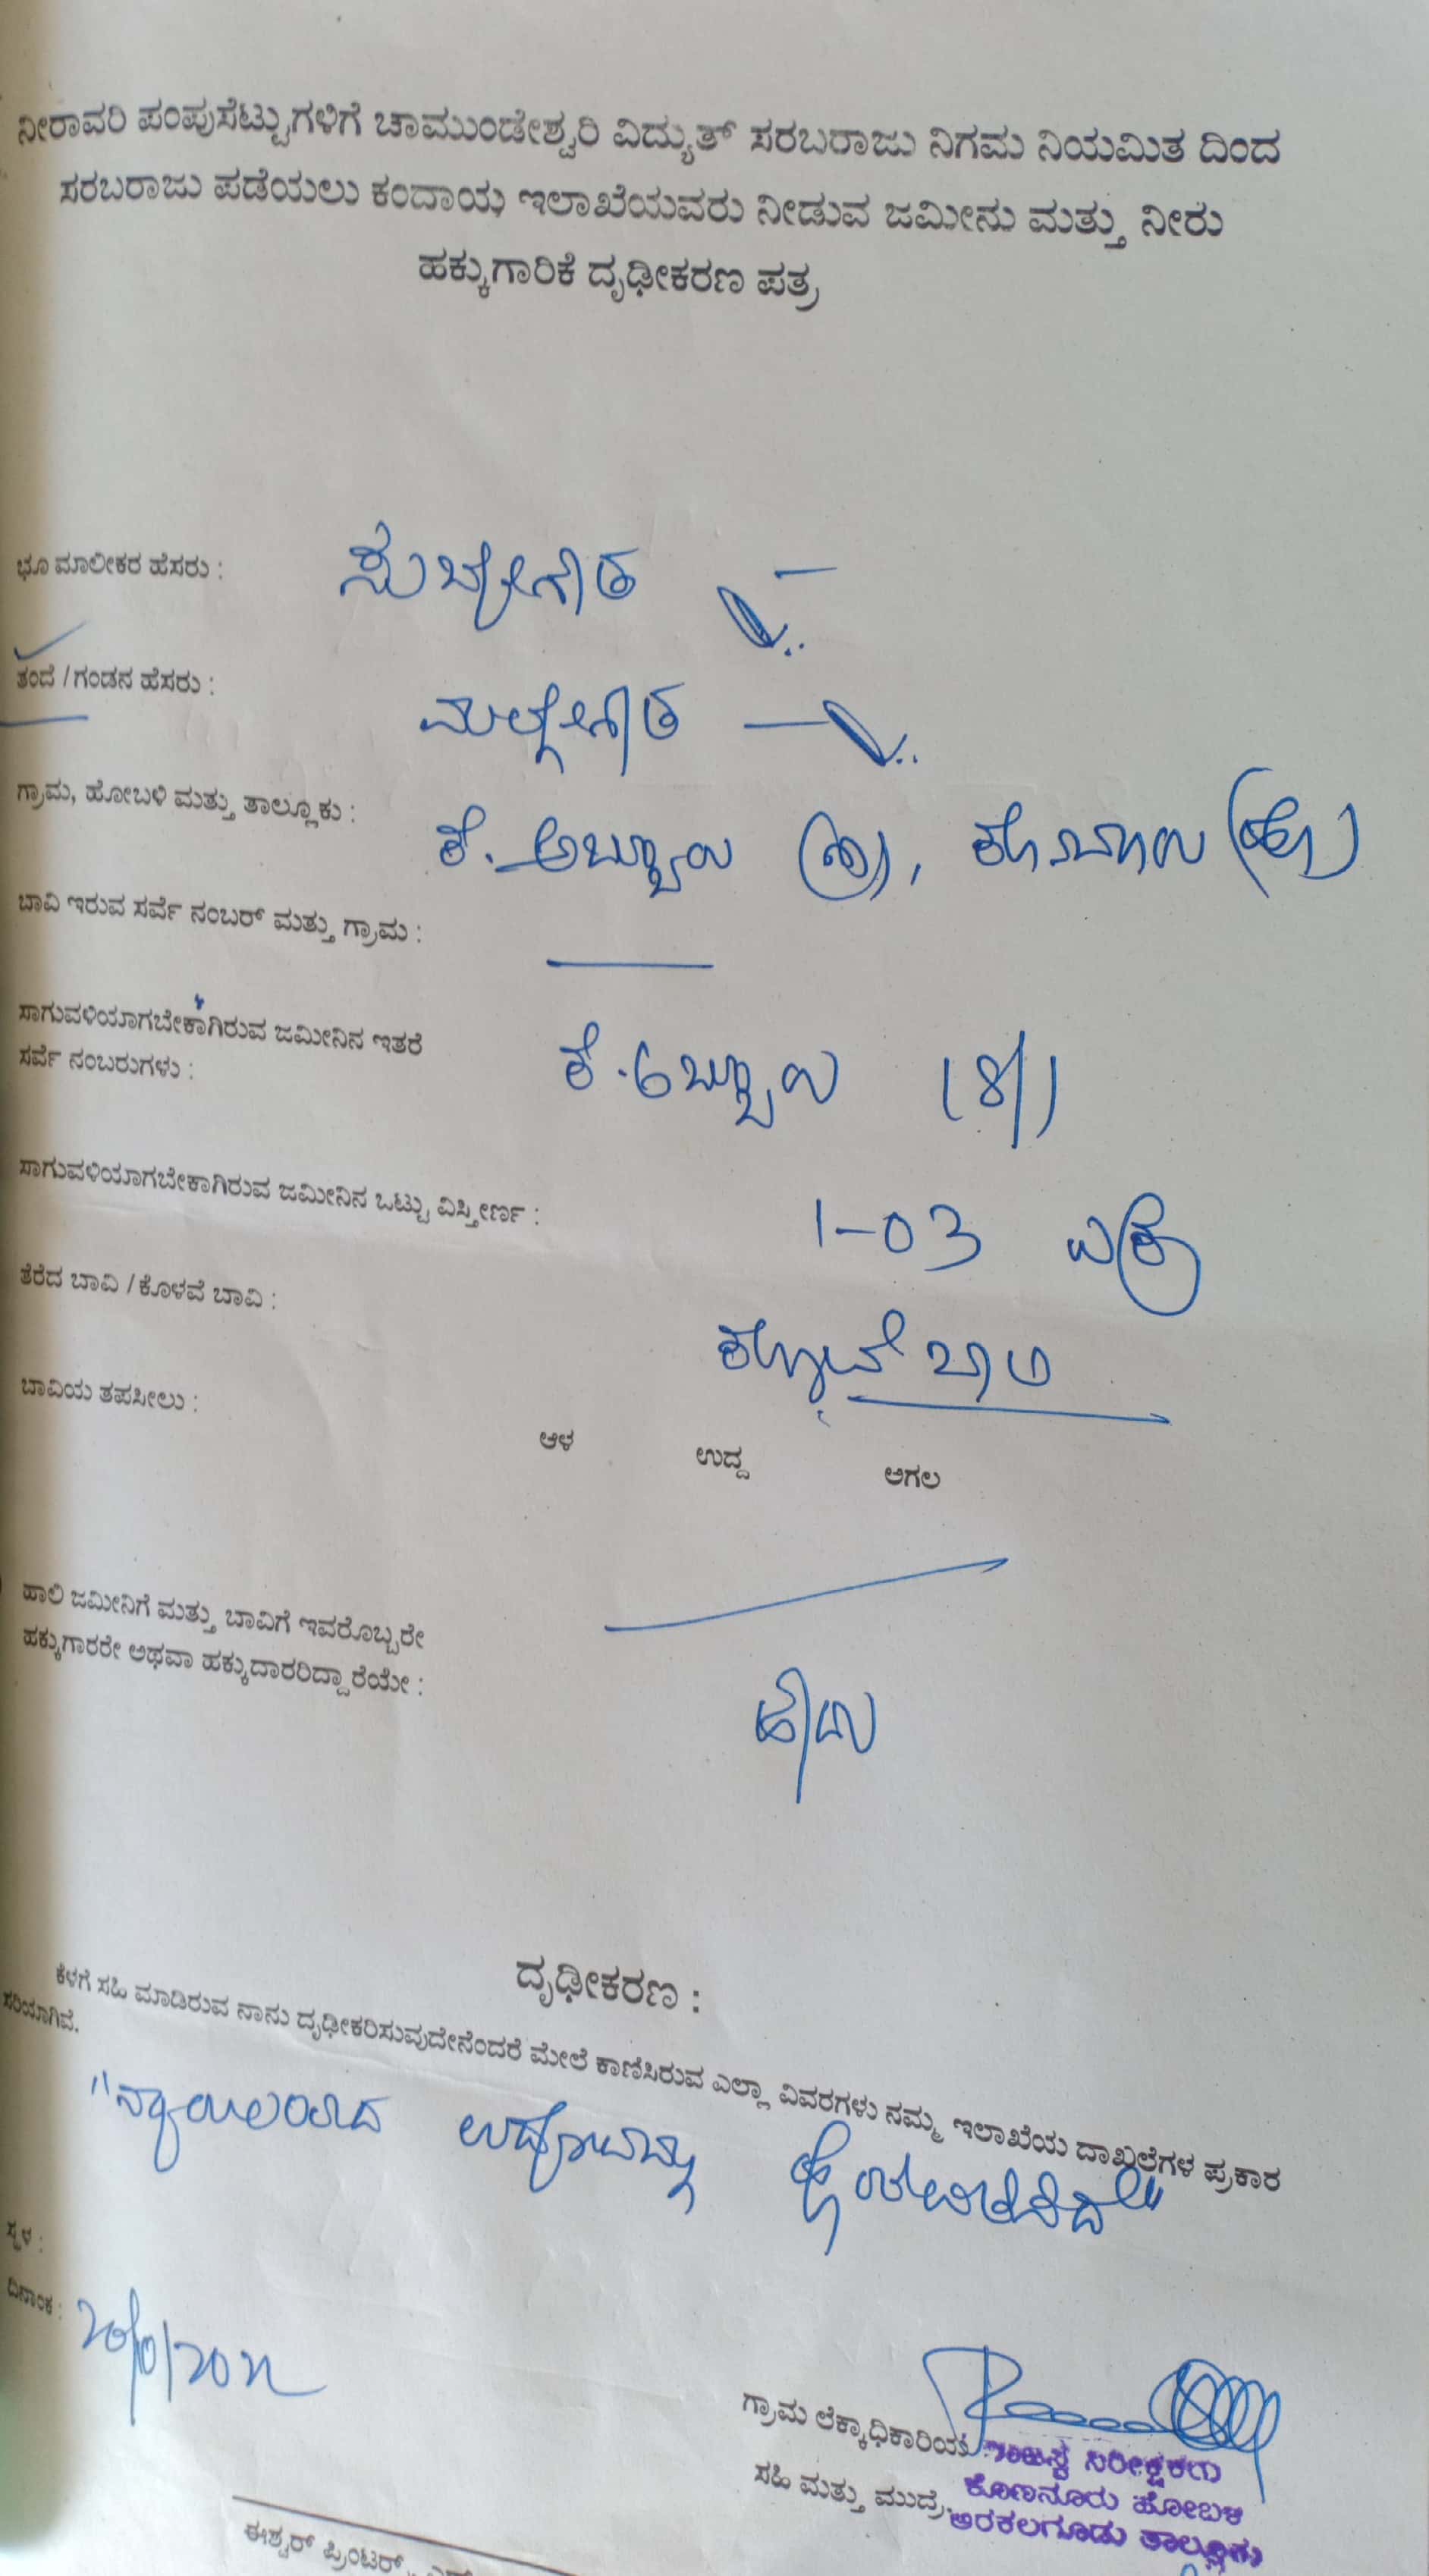 ನೀರಾವರಿ ಪಂಪುಸೆಟ್ಟುಗಳಿಗೆ ಚಾಮುಂಡೇಶ್ವರಿ ವಿದ್ಯುತ್ ಸರಬರಾಜು ನಿಗಮ ನಿಯಮಿತ ದಿಂದ
ಸರಬರಾಜು ಪಡೆಯಲು ಕಂದಾಯ ಇಲಾಖೆಯವರು ನೀಡುವ ಜಮೀನು ಮತ್ತು ನೀರು
ಹಕ್ಕುಗಾರಿಕೆ ದೃಢೀಕರಣ ಪತ್ರ
ಭೂ ಮಾಲೀಕರ ಹೆಸರು :
ತಂದೆ / ಗಂಡನ ಹೆಸರು :
ಗ್ರಾಮ, ಹೋಬಳಿ ಮತ್ತು ತಾಲ್ಲೂಕು : ಕೆ.
ಬಾವಿ ಇರುವ ಸರ್ವೆ ನಂಬರ್ ಮತ್ತು ಗ್ರಾಮ :
ಸಾಗುವಳಿಯಾಗಬೇಕಾಗಿರುವ ಜಮೀನಿನ ಇತರೆ
ಸರ್ವೆ ನಂಬರುಗಳು : ಕೆ.
ಸಾಗುವಳಿಯಾಗಬೇಕಾಗಿರುವ ಜಮೀನಿನ ಒಟ್ಟು ವಿಸ್ತೀರ್ಣ : 1-03 ಎಕ್ರೆ
ತೆರೆದ ಬಾವಿ / ಕೊಳವೆ ಬಾವಿ : ಕೊಳವೆ ಬಾವಿ
ಬಾವಿಯ ತಪಸೀಲು :
ಆಳ ಉದ್ದ ಅಗಲ
ಹಾಲಿ ಜಮೀನಿಗೆ ಮತ್ತು ಬಾವಿಗೆ ಇವರೊಬ್ಬರೇ
ಹಕ್ಕುಗಾರರೇ ಅಥವಾ ಹಕ್ಕುದಾರರಿದ್ದಾರೆಯೇ : ಹೌದು
ದೃಢೀಕರಣ :
ಕೆಳಗೆ ಸಹಿ ಮಾಡಿರುವ ನಾನು ದೃಢೀಕರಿಸುವುದೇನೆಂದರೆ ಮೇಲೆ ಕಾಣಿಸಿರುವ ಎಲ್ಲಾ ವಿವರಗಳು ನಮ್ಮ ಇಲಾಖೆಯ ದಾಖಲೆಗಳ ಪ್ರಕಾರ
ಸರಿಯಾಗಿವೆ.
ಸ್ಥಳ :
ದಿನಾಂಕ :
ಗ್ರಾಮ ಲೆಕ್ಕಾಧಿಕಾರಿಯ
ಸಹಿ ಮತ್ತು ಮುದ್ರೆ
ರಾಜಸ್ವ ನಿರೀಕ್ಷಕರು
ಕೊಣನೂರು ಹೋಬಳಿ
ಅರಕಲಗೂಡು ತಾಲ್ಲೂಕು
ಈಶ್ವರ್ ಪ್ರಿಂಟರ್ಸ್,